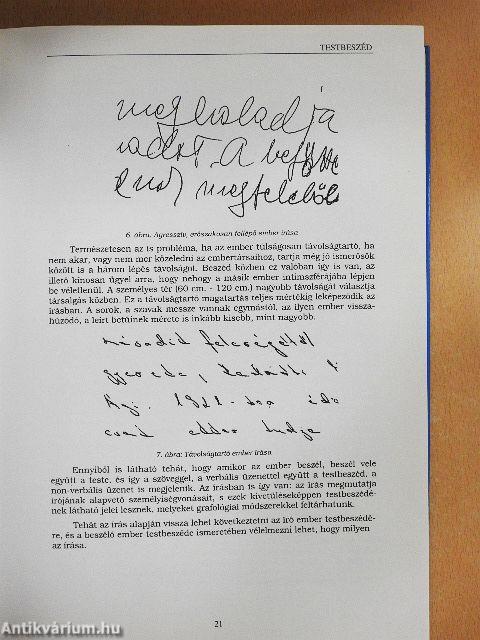 TESTBESZÉD
meghaladja
6. ábra: Agresszív, erőszakosan fellépő ember írása
Természetesen az is probléma, ha az ember túlságosan távolságtartó, ha
nem akar, vagy nem mer közeledni az embertársaihoz, tartja még jó ismerősök
között is a három lépés távolságot. Beszéd közben ez valóban így is van, az
illető kínosan ügyel arra, hogy nehogy a másik ember intimszférájába lépjen
be véletlenül. A személyes tér (60 cm. - 120 cm.) nagyobb távolságát választja
társalgás közben. Ez a távolságtartó magatartás teljes mértékig leképeződik az
írásban. A sorok, a szavak messze vannak egymástól, az ilyen ember vissza-
húzódó, a leírt betűinek mérete is inkább kisebb, mint nagyobb.
második feleségétől
gyereke,
1921-ben
csak
7. ábra: Távolságtartó ember írása
Ennyiből is látható tehát, hogy amikor az ember beszél, beszél vele
együtt a teste, és így a szöveggel, a verbális üzenettel együtt a testbeszéd, a
non-verbális üzenet is megjelenik. Az írásban is így van: az írás megmutatja
írójának alapvető személyiségvonásait, s ezek kivetüléseképpen testbeszédé-
nek látható jelei lesznek, melyeket grafológiai módszerekkel feltárhatunk.
Tehát az írás alapján vissza lehet következtetni az író ember testbeszédé-
re, és a beszélő ember testbeszéde ismeretében vélelmezni lehet, hogy milyen
az írása.
21
Antikvárium.hu